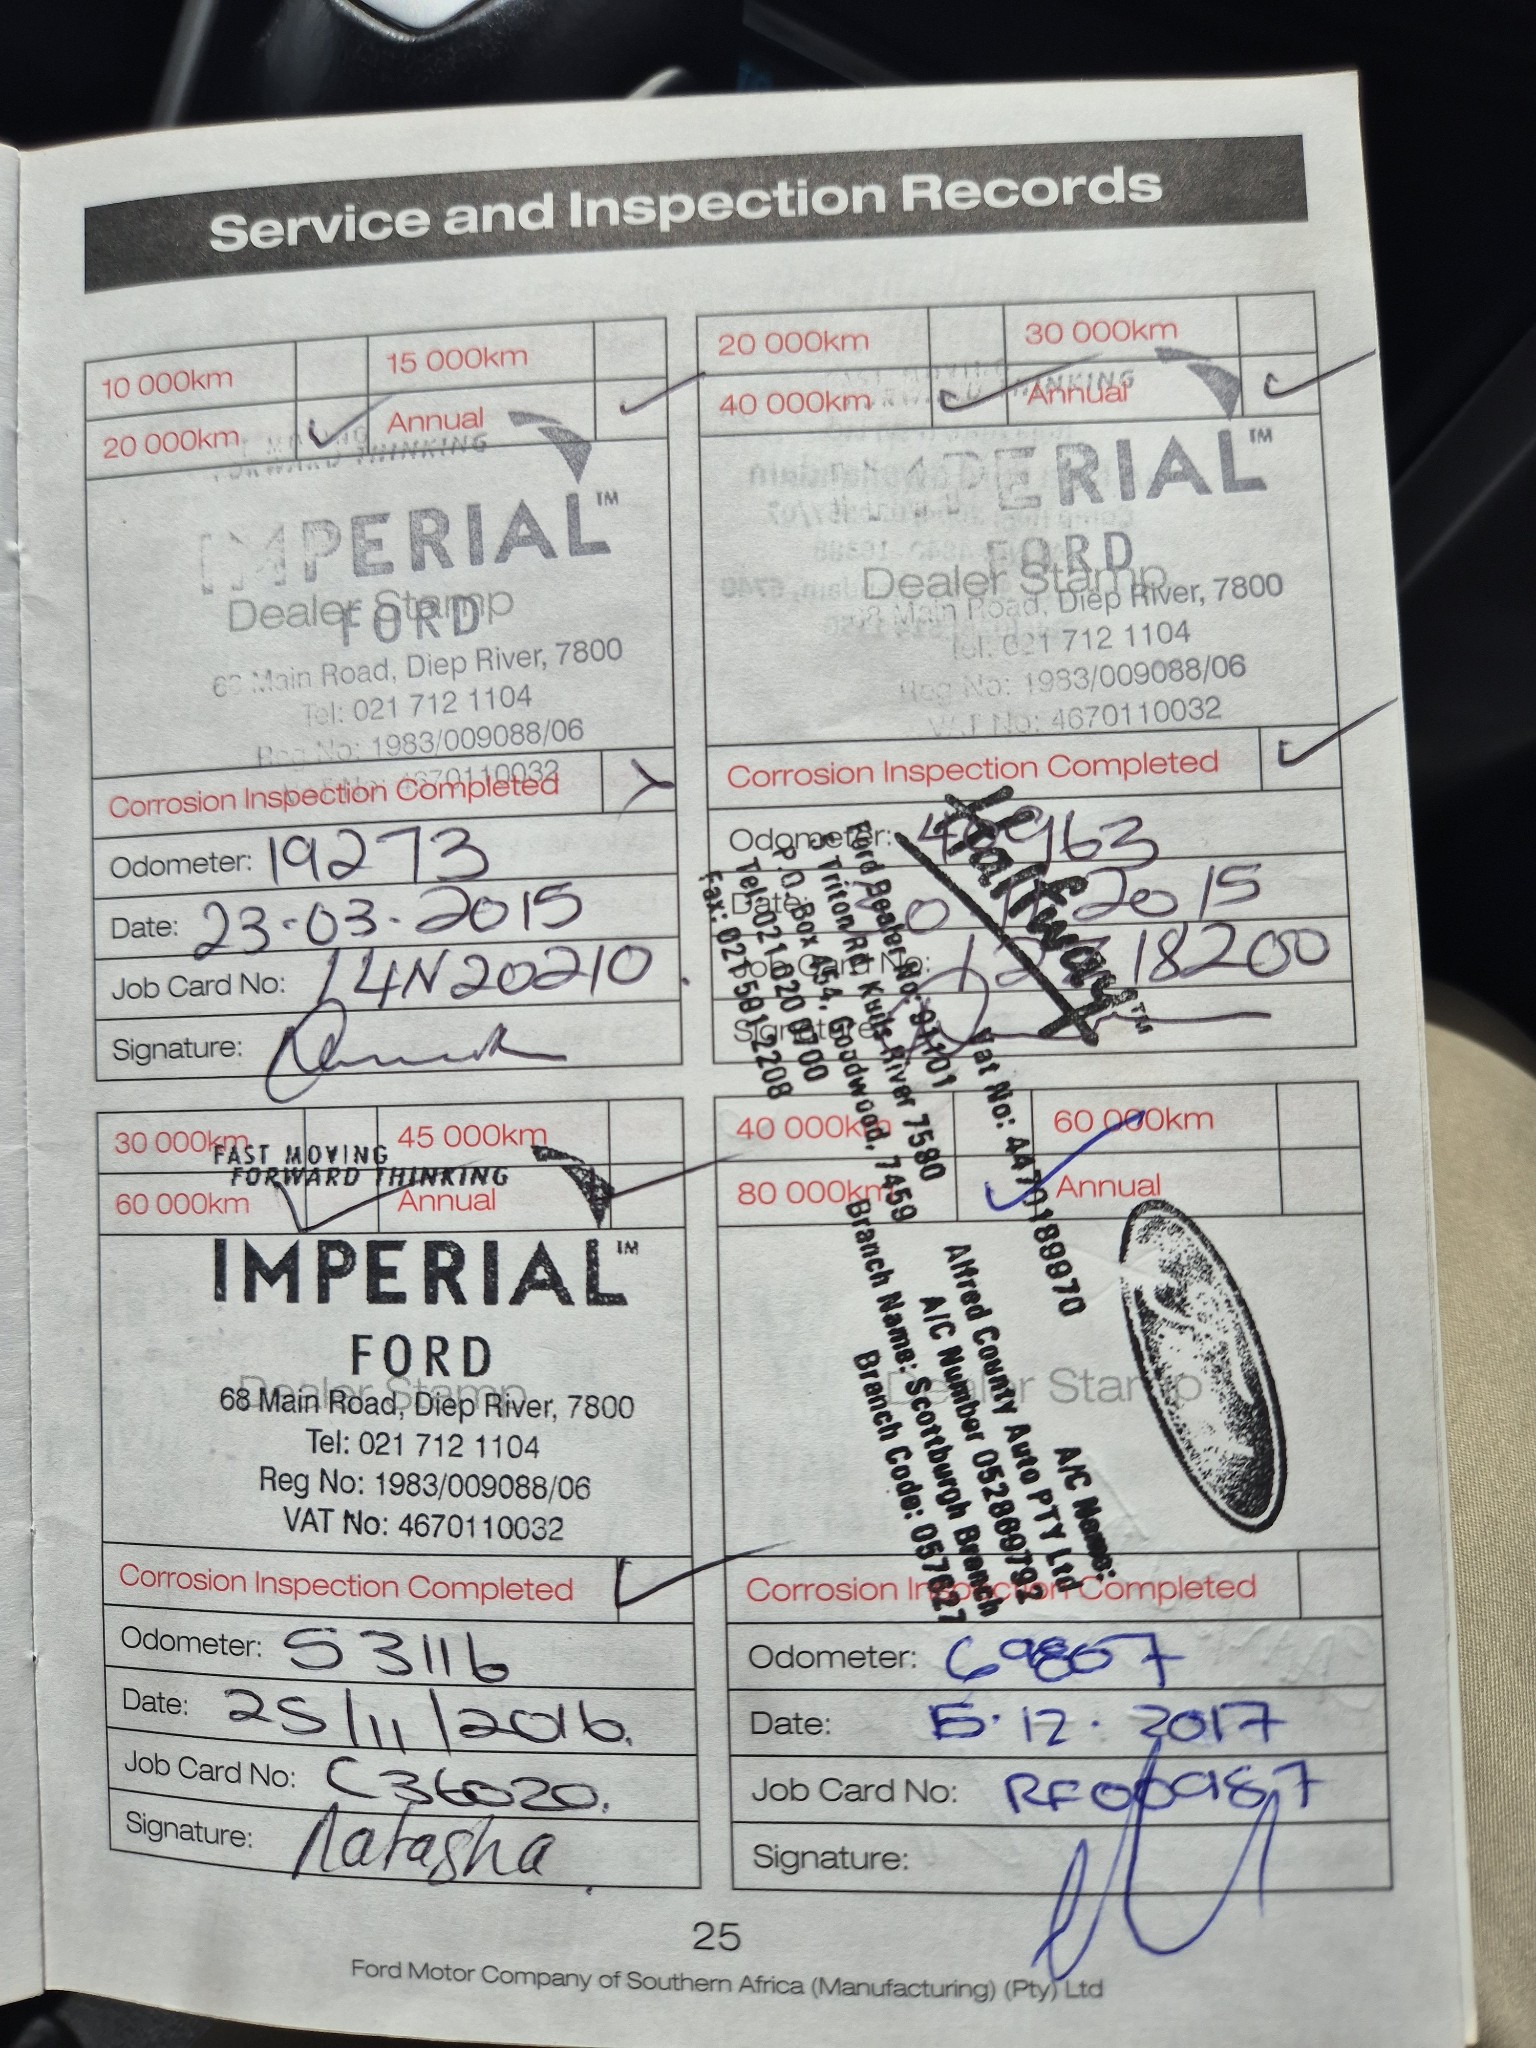 Service and Inspection Records
10 000km 15 000km
20 000km Annual
THINKING
IMPERIAL™
FORD
Dealer Stamp
68 Main Road, Diep River, 7800
Tel: 021 712 1104
Reg No: 1983/009088/06
VAT No: 4670110032
Corrosion Inspection Completed
Odometer: 19273
Date: 23-03-2015
Job Card No: 14N20210
Signature:
20 000km 30 000km
40 000km Annual
THINKING
IMPERIAL™
FORD
Dealer Stamp
68 Main Road, Diep River, 7800
Tel: 021 712 1104
Reg No: 1983/009088/06
VAT No: 4670110032
Corrosion Inspection Completed
Odometer:
Date: 2015
Job Card No: 18200
Signature:
30 000km 45 000km
60 000km Annual
FAST MOVING
FORWARD THINKING
IMPERIAL™
FORD
Dealer Stamp
68 Main Road, Diep River, 7800
Tel: 021 712 1104
Reg No: 1983/009088/06
VAT No: 4670110032
Corrosion Inspection Completed
Odometer: 53116
Date: 25/11/2016.
Job Card No: C36020.
Signature: Natasha
40 000km 60 000km
80 000km Annual
Halfway™
Vat No: 4470189970
Ford Dealer No: 91101
Triton Rd Kuils River 7580
P.O. Box 454, Goodwood, 7459
Tel: 021 020 0700
Fax: 021 591 2208
A/C Name:
Alfred County Auto PTY Ltd
A/C Number 052869792
Branch Name: Scottburgh Branch
Branch Code: 057627
Dealer Stamp
Corrosion Inspection Completed
Odometer: 69807
Date: 12. 2017
Job Card No: RF00987
Signature:
25
Ford Motor Company of Southern Africa (Manufacturing) (Pty) Ltd